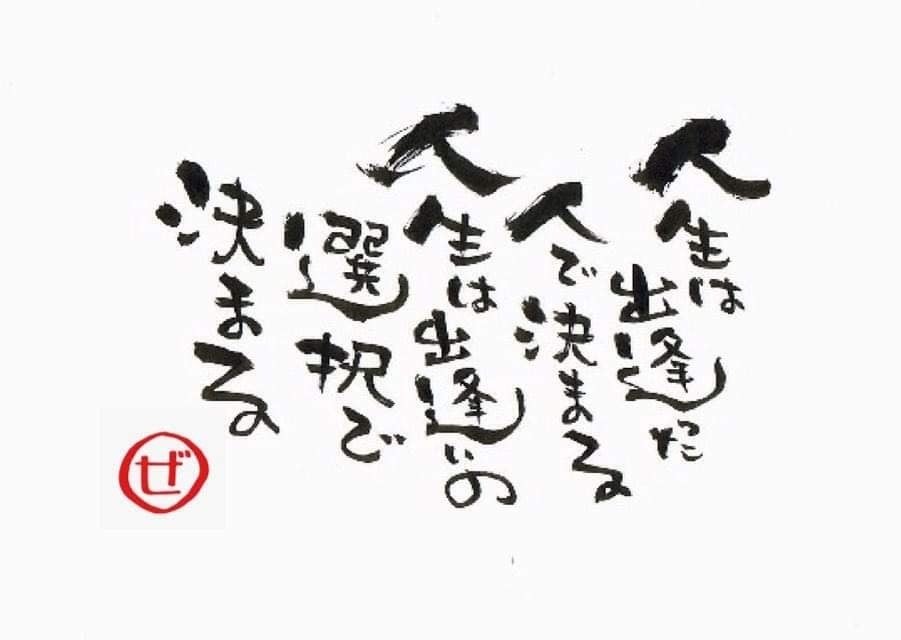 人生は出逢た
人で決まる
人生は出逢いの
選択で
決まる
ぜ